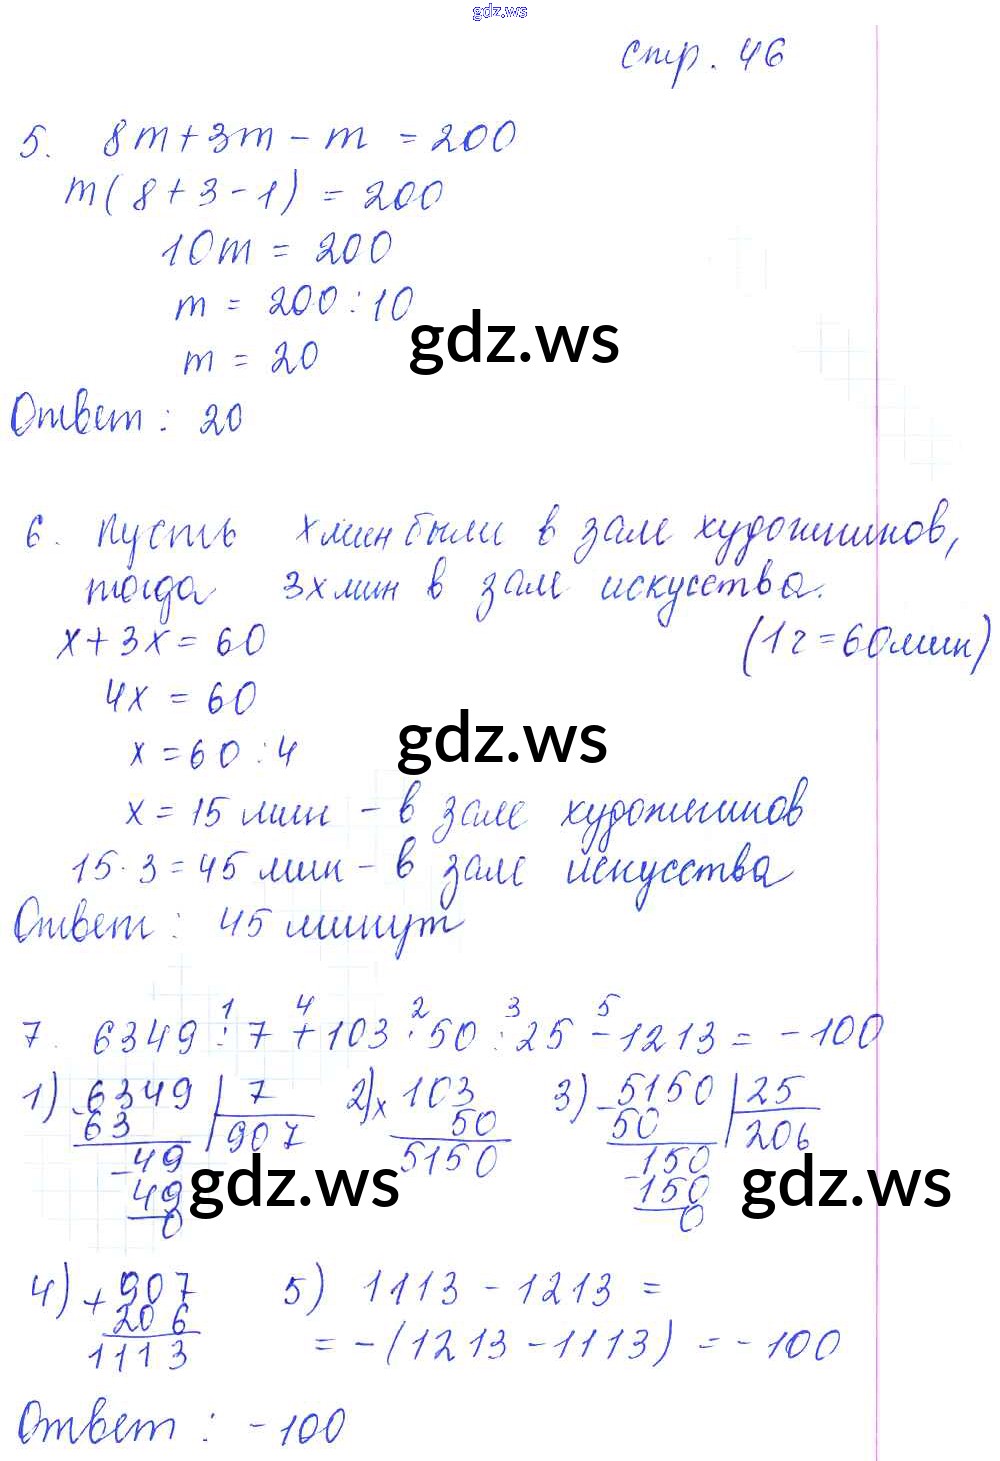 gdz.ws
стр. 46
5. 8m + 3m - m = 200
m(8 + 3 - 1) = 200
10m = 200
m = 200 : 10
gdz.ws
m = 20
Ответ : 20
6. Пусть x мин были в зале художников,
тогда 3x мин в зале искусства.
x + 3x = 60 (1 г = 60 мин)
4x = 60
gdz.ws
x = 60 : 4
x = 15 мин - в зале художников
15 · 3 = 45 мин - в зале искусства
Ответ : 45 минут
1 4 2 3 5
7. 6349 : 7 + 103 · 50 : 25 - 1213 = -100
1) 6349 | 7 2) x 103 3) 5150 | 25
- 63 907 50 - 50 206
- 49 5150 150
49 - 150
0 0
gdz.ws gdz.ws
4) + 907 5) 1113 - 1213 =
206 = -(1213 - 1113) = -100
1113
Ответ : -100